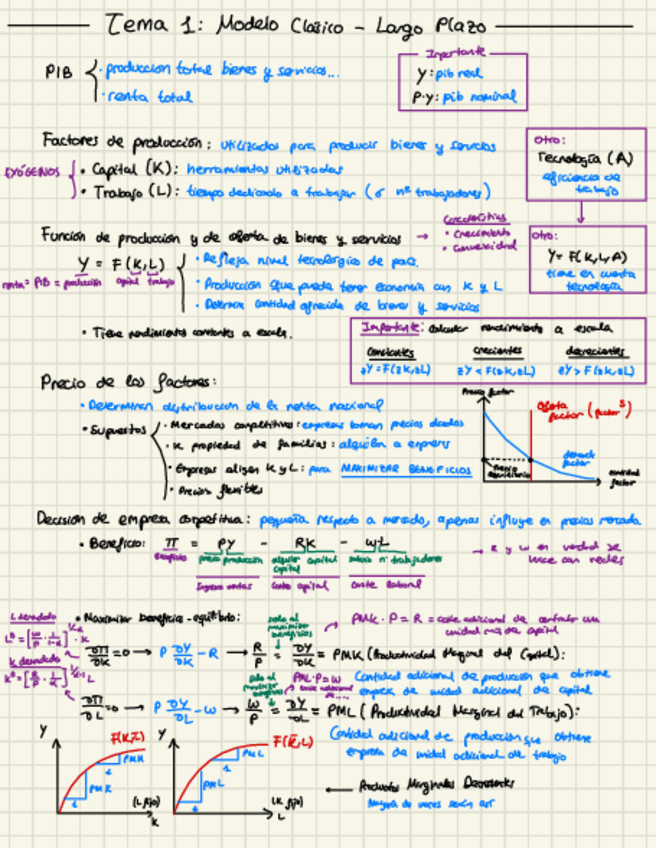 Tema 1: Modelo Clásico - Largo Plazo
PIB
· producción total bienes y servicios...
· renta total
Importante
Y: pib real
P·Y: pib nominal
Factores de producción: utilizados para producir bienes y servicios
EXÓGENOS
· Capital (K): herramientas utilizadas
· Trabajo (L): tiempo dedicado a trabajar (o nº trabajadores)
Otro:
Tecnología (A)
eficiencia de
trabajo
Función de producción y de oferta de bienes y servicios →
Características
· Crecimiento
· Convexidad
Otro:
Y = F(K, L, A)
tiene en cuenta
tecnología
Y = F(K, L)
renta = PIB = producción
capital trabajo
· Refleja nivel tecnológico de país.
· Producción que puede tener economía con K y L
· Determina cantidad ofrecida de bienes y servicios
· Tiene rendimientos constantes a escala.
Importante: calcular rendimiento a escala
constantes crecientes decrecientes
zY = F(zK, zL) zY < F(zK, zL) zY > F(zK, zL)
Precio de los factores:
· Determinan distribución de la renta nacional
· Supuestos
· Mercados competitivos: empresas toman precios dados
· K propiedad de familias: alquilan a empresas
· Empresas eligen K y L: para MAXIMIZAR BENEFICIOS
· Precios flexibles
Precio factor
Oferta
factor (factor S)
demanda
factor
Precio
equilibrio
cantidad
factor
Decisión de empresa competitiva: pequeña respecto a mercado, apenas influye en precios mercado.
· Beneficio: π = PY - RK - WL
beneficio
precio producción
alquiler capital
capital
salario nº trabajadores
Ingreso ventas
coste capital
coste laboral
→ R y W en verdad se
hace con reales
L demandado
K demandado
· Maximizar beneficios - equilibrio:
solo al
maximizar
beneficios
PMK · P = R = coste adicional de contratar una
unidad más de capital
∂π/∂K = 0 → P ∂Y/∂K - R → R/P = ∂Y/∂K = PMK (Productividad Marginal del Capital):
Cantidad adicional de producción que obtiene
empresa de unidad adicional de capital
PML · P = W
∂π/∂L = 0 → P ∂Y/∂L - W → W/P = ∂Y/∂L = PML (Productividad Marginal del Trabajo):
Cantidad adicional de producción que obtiene
empresa de unidad adicional de trabajo
Y
F(K, L̄)
PMK
PMK
1
1
(L fijo)
K
Y
F(K̄, L)
PML
PML
1
1
(K fijo)
L
← Productos Marginales Decrecientes
Mayoría de veces serán así